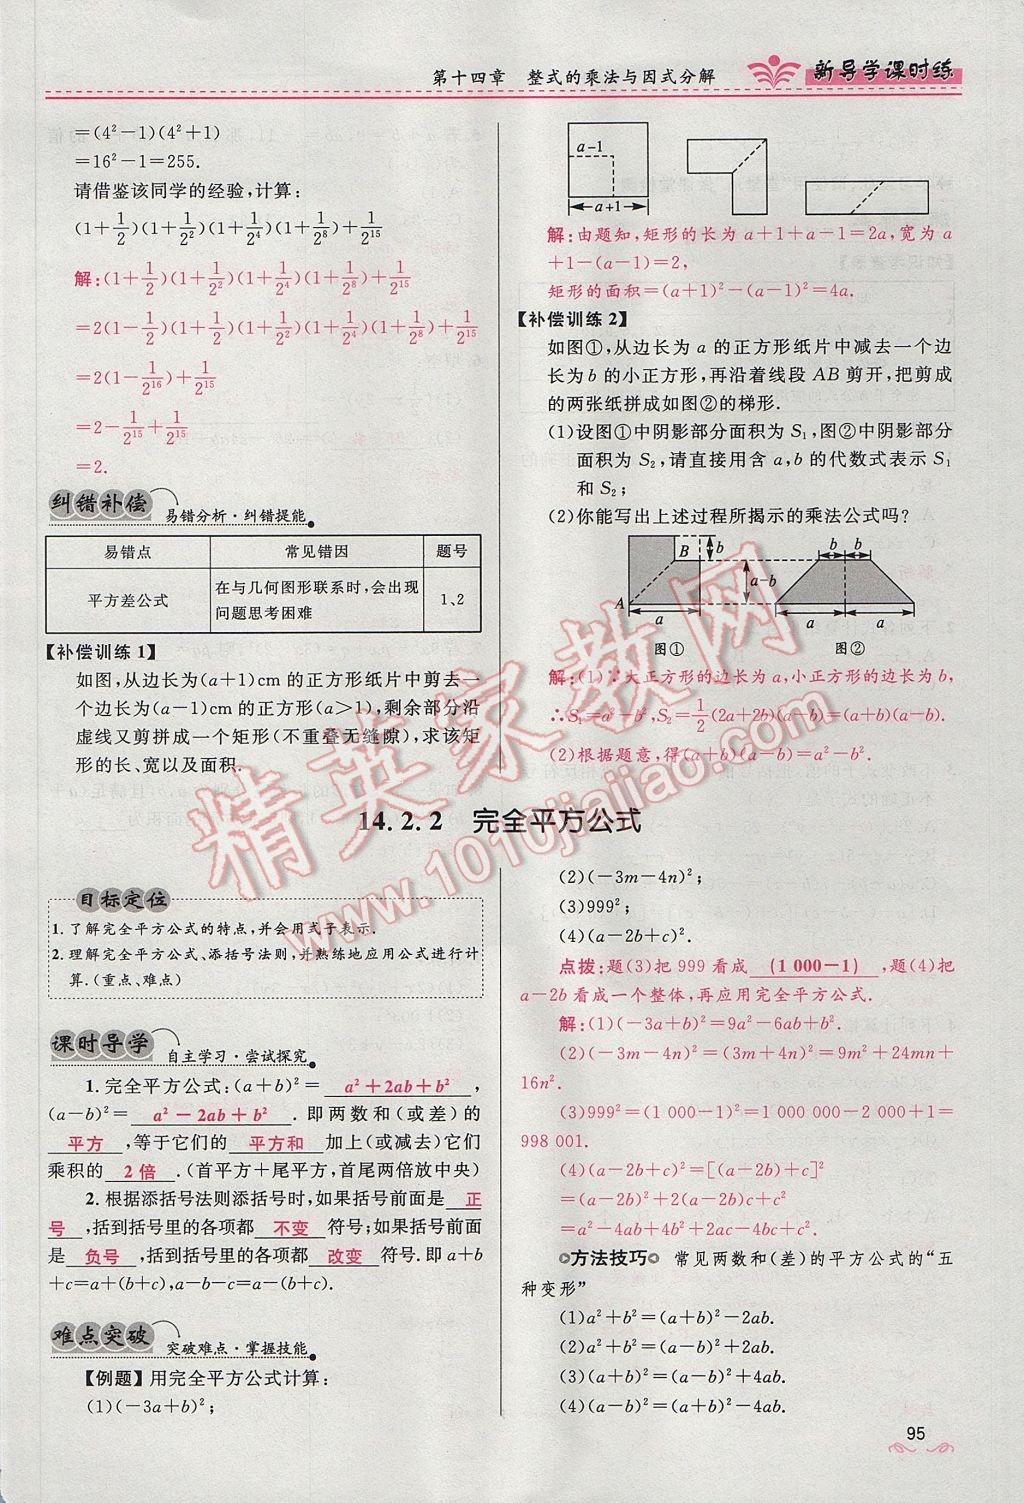 第十四章 整式的乘法与因式分解
新导学课时练
=(4²-1)(4²+1)
=16²-1=255.
请借鉴该同学的经验,计算:
(1+1/2)(1+1/2²)(1+1/2⁴)(1+1/2⁸)+1/2¹⁵
解:(1+1/2)(1+1/2²)(1+1/2⁴)(1+1/2⁸)+1/2¹⁵
=2(1-1/2)(1+1/2)(1+1/2²)(1+1/2⁴)(1+1/2⁸)+1/2¹⁵
=2(1-1/2¹⁶)+1/2¹⁵
=2-1/2¹⁵+1/2¹⁵
=2.
纠错补偿 易错分析·纠错提能
易错点 常见错因 题号
平方差公式 在与几何图形联系时,会出现
问题思考困难 1、2
【补偿训练1】
如图,从边长为(a+1)cm的正方形纸片中剪去一
个边长为(a-1)cm的正方形(a>1),剩余部分沿
虚线又剪拼成一个矩形(不重叠无缝隙),求该矩
形的长、宽以及面积.
a-1
a+1
解:由题知,矩形的长为a+1+a-1=2a,宽为a
+1-(a-1)=2,
矩形的面积=(a+1)²-(a-1)²=4a.
【补偿训练2】
如图①,从边长为a的正方形纸片中减去一个边
长为b的小正方形,再沿着线段AB剪开,把剪成
的两张纸拼成如图②的梯形.
(1)设图①中阴影部分面积为S₁,图②中阴影部分
面积为S₂,请直接用含a,b的代数式表示S₁
和S₂;
(2)你能写出上述过程所揭示的乘法公式吗?
B b b b
A a-b
a a a
图① 图②
解:(1)∵大正方形的边长为a,小正方形的边长为b,
∴S₁=a²-b²,S₂=1/2(2a+2b)(a-b)=(a+b)(a-b).
(2)根据题意,得(a+b)(a-b)=a²-b².
14.2.2 完全平方公式
目标定位
1.了解完全平方公式的特点,并会用式子表示.
2.理解完全平方公式、添括号法则,并熟练地应用公式进行计
算.(重点、难点)
课时导学 自主学习·尝试探究
1.完全平方公式:(a+b)²= a²+2ab+b² ,
(a-b)²= a²-2ab+b² .即两数和(或差)的
平方 ,等于它们的 平方和 加上(或减去)它们
乘积的 2倍 .(首平方+尾平方,首尾两倍放中央)
2.根据添括号法则添括号时,如果括号前面是 正
号 ,括到括号里的各项都 不变 符号;如果括号前面
是 负号 ,括到括号里的各项都 改变 符号.即a+b
+c=a+(b+c),a-b-c=a-(b+c).
难点突破 突破难点·掌握技能
【例题】用完全平方公式计算:
(1)(-3a+b)²;
(2)(-3m-4n)²;
(3)999²;
(4)(a-2b+c)².
点拨:题(3)把999看成 (1 000-1) ,题(4)把
a-2b看成一个整体,再应用完全平方公式.
解:(1)(-3a+b)²=9a²-6ab+b².
(2)(-3m-4n)²=(3m+4n)²=9m²+24mn+
16n².
(3)999²=(1 000-1)²=1 000 000-2 000+1=
998 001.
(4)(a-2b+c)²=[(a-2b)+c]²
=(a-2b)²+2(a-2b)c+c²
=a²-4ab+4b²+2ac-4bc+c².
方法技巧 常见两数和(差)的平方公式的“五
种变形”
(1)a²+b²=(a+b)²-2ab.
(2)a²+b²=(a-b)²+2ab.
(3)(a+b)²=(a-b)²+4ab.
(4)(a-b)²=(a+b)²-4ab.
95
精英家教网
www.1010jiajiao.com